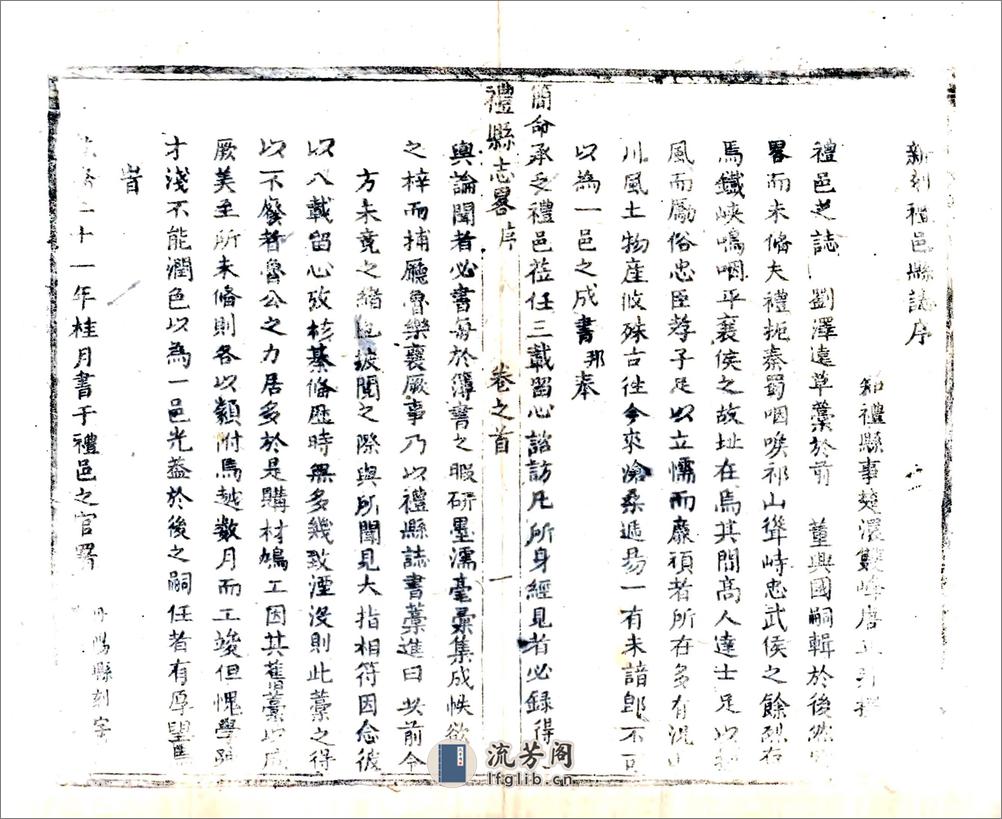 新刻禮邑縣誌序
知禮縣事楚澴雙峰唐
禮邑之誌 劉澤遠草藁於前 董興國嗣輯於後然
畧而未脩夫禮扼秦蜀咽喉祁山聳峙忠武侯之餘烈在
焉鐵峽嗚咽平襄侯之故址在焉其間高人達士足以
風而勵俗忠臣孝子足以立懦而廉頑者所在多有況山
川風土物產攸殊古徃今來滄桑遞易一有未諳郎不可
以為一邑之成書邪奉
簡命承乏禮邑莅任三載留心諮訪凡所身經見者必録得
禮縣志畧序 卷之首 一
輿論聞者必書每於簿書之暇研墨濡毫彙集成帙欲
之梓而捕廳魯樂襄厥事乃以禮縣誌書藁進曰此前令
方未竟之緒也披閱之際與所聞見大指相符因念彼
以八載留心攷核綦脩歴時無多幾致湮没則此藁之得
以不廢者魯公之力居多於是購材鳩工因其舊藁以成
厥美至所未脩則各以類附焉越数月而工竣但愧學疎
才淺不能潤色以為一邑光葢於後之嗣任者有厚望焉
旹
二十一年桂月書于禮邑之官署
縣刻字
流芳阁
lfglib.cn